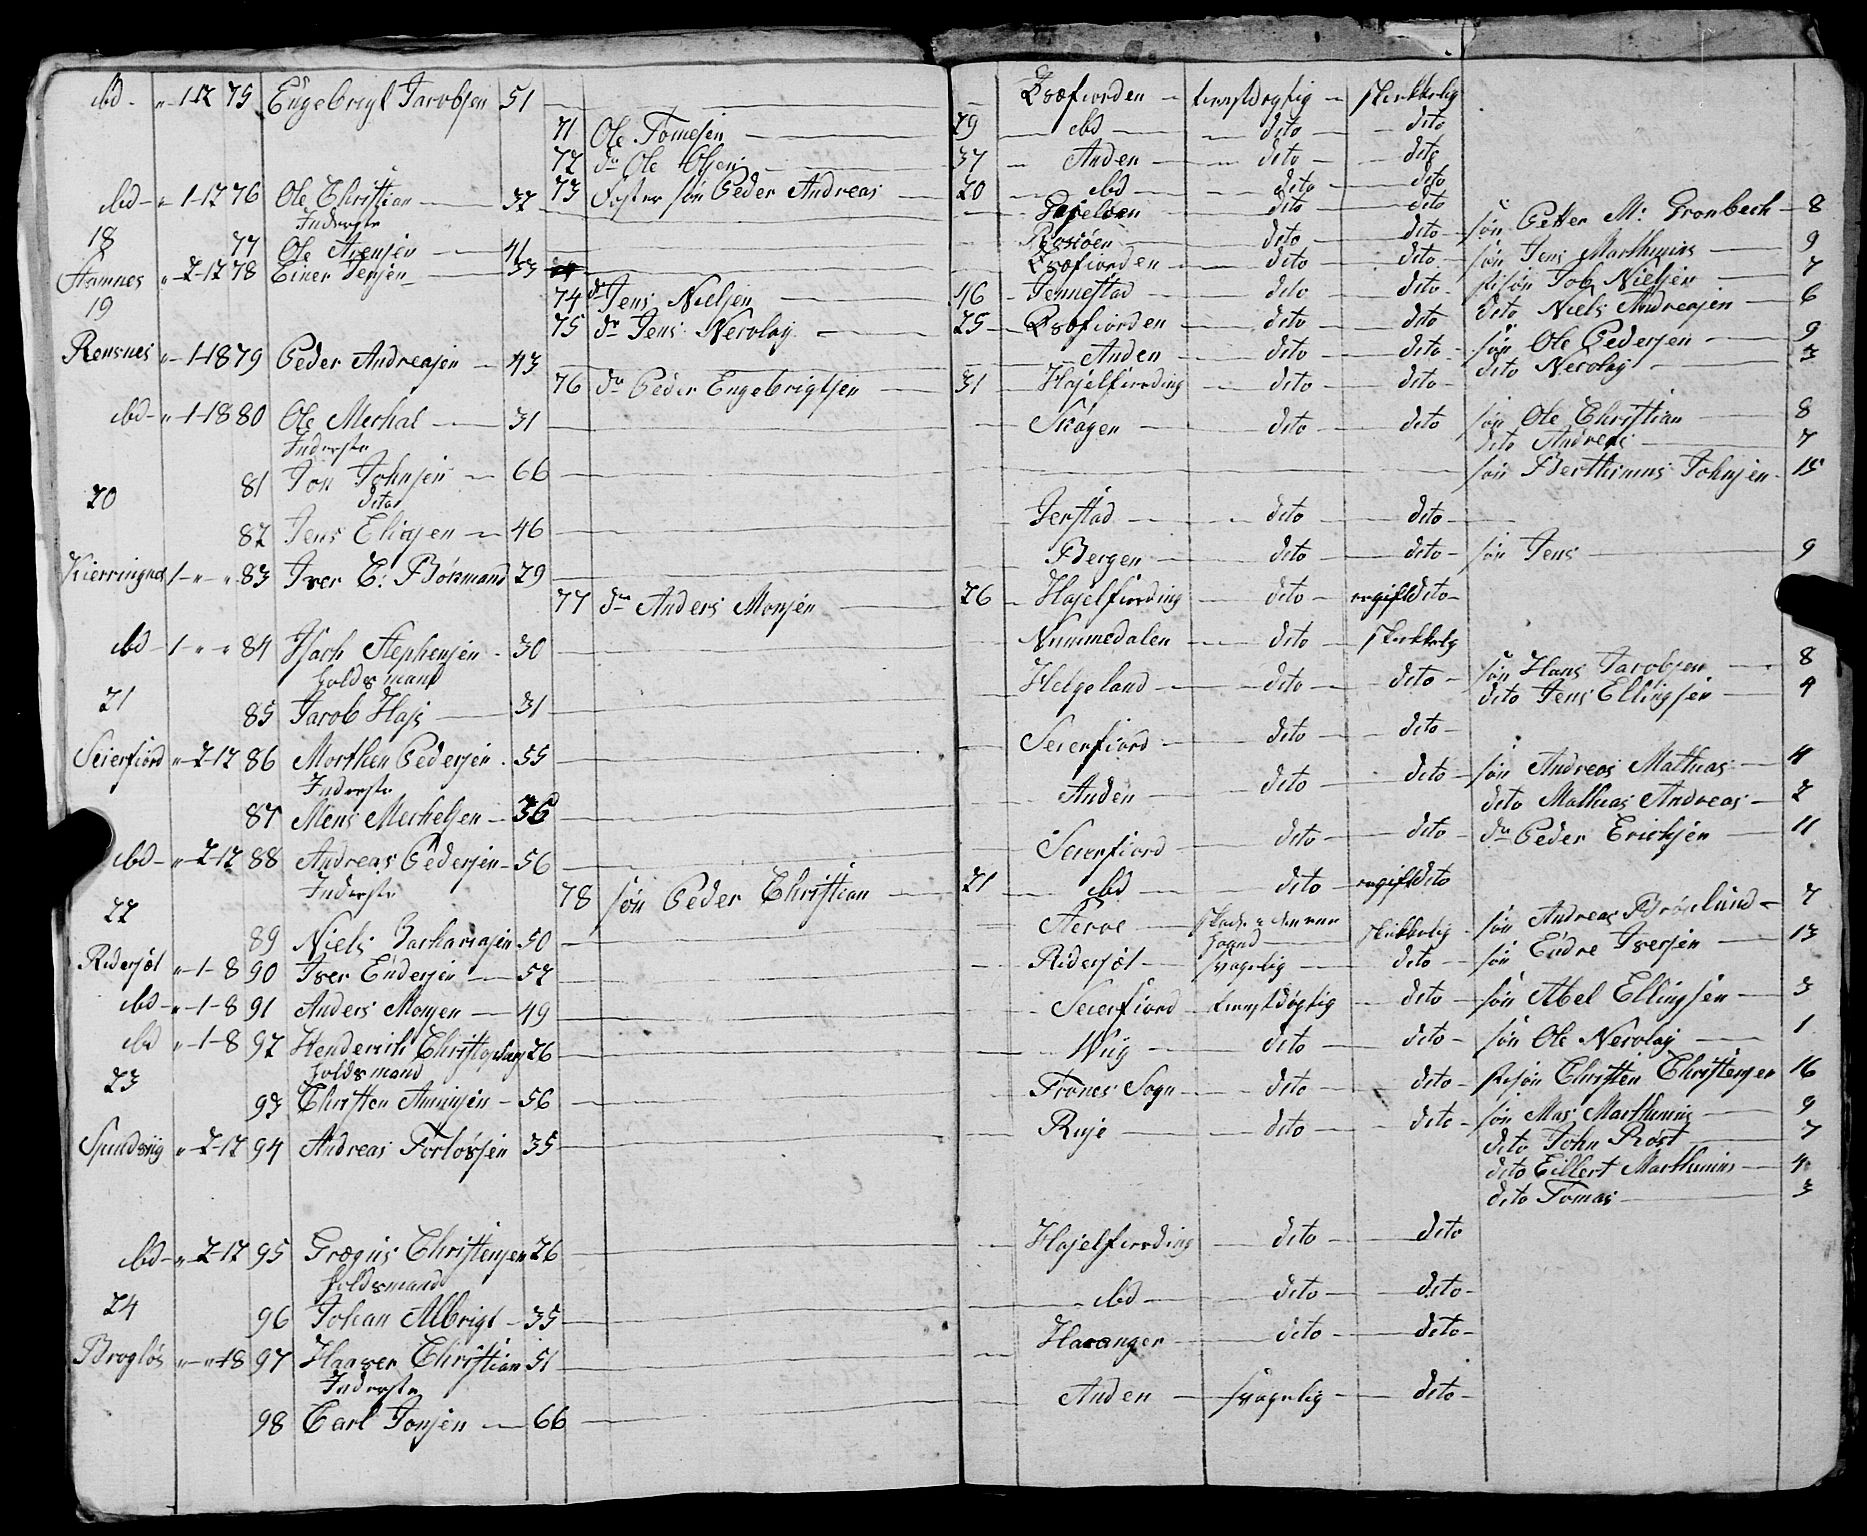 ibd - " 1-12 75 Engebrigt Jacobsen 51 — Qvæfiorden — tienstdygtig — skikkelig
71 Ole Tomesen — 29 — ibd — dito — dito
72 do Ole Olsen — 37 — Anden — dito — dito
73 Foster søn Peder Andreas — 20 — ibd — dito — dito
ibd - " 1-12 76 Ole Christian — 32 — dito — dito — søn Petter M: Gronbech — 8
Inderste
18 77 Ole Arensen — 41 — dito — dito — søn Jens Marthinus — 9
Hamnes " 2-12 78 Einer Jensen — 33 — Qvæfiorden — dito — dito — stisøn Job Nielsen — 7
74 do Jens Nielsen — 46 — Jennestad — dito — dito — dito Niels Andreasen — 6
19 75 do Jens Nicolay — 25 — Qvæfiorden — dito — dito — søn Ole Pedersen — 9
Rensnes " 1-18 79 Peder Andreasen — 43 — Anden — dito — dito — dito Nicolay — 3
76 do Peder Engebrigtsen — 31 — Hasselfierding — dito — dito
ibd - " 1-18 80 Ole Merhal — 31 — Skogen — dito — dito — søn Ole Christian — 8
Inderste dito Andreas — 7
81 Jon Johnsen — 66 — søn Berthinius Johnsen — 15
20 dito
82 Jens — 46 — Jerstad — dito — dito
Kierringnes 1 - " " 83 Iver C: Børsmand 29 — Bergen — dito — dito — søn Jens — 9
77 do Anders Monsen — 26 — Hasselfierding — dito — ugift dito
ibd - 1 - " " 84 Isach Stephensen — 30 — Nummedalen — dito — skikkelig
holdsmand
21 85 Jacob Hass — 31 — Helgeland — dito — dito — søn Hans Jacobsen — 8
dito Jens Ellingsen — 4
Seierfiord " 2-12 86 Morthen Pedersen — 55 — Seierfiord — dito — dito
Inderste
87 Mens Merhelsen — 36 — Anden — dito — dito — søn Andreas Mathias — 4
dito Mathias Andreas — 2
ibd - " 2-12 88 Andreas Pedersen — 56 — Seierfiord — dito — dito — do Peder Erichsen — 11
Inderste 78 søn Peder Christian — 21 — ibd — dito — ugift dito
22 89 Niels Zachariasen 50 — skikkelig — søn Andreas — 7
Ridersæt " 1-8 90 Iver Endersen — 52 — Ridersæt — svagelig — dito — søn Endre Iversen — 13
ibd - " 1-8 91 Anders Monsen — 49 — Seierfiord — tienstdygtig — dito — søn Abel Ellingsen — 3
ibd " 1-8 92 Henderich 26 — Wiig — dito — dito — søn Ole Nicolay — 1
holdsmand
23 93 Christen — 56 — Trones Sogn — dito — dito — stisøn Christen Christensen 16
Spindsviig " 2-12 94 Andreas 35 — dito — dito — søn Mas Marthinus — 9
dito John Rost — 7
dito Eillert Marthinus — 4
dito Tomas — 3
ibd - " 2-12 95 Grægus Christensen 26 — Hasselfierding — dito — dito
holdsmand
24 96 Johan Albrigt — 35 — ibd — dito — dito
Brogløs " - " 18 97 Haaver Christian 51 — Haranger — dito — dito
Inderste
98 Carl Jonsen — 66 — Anden — svagelig — dito